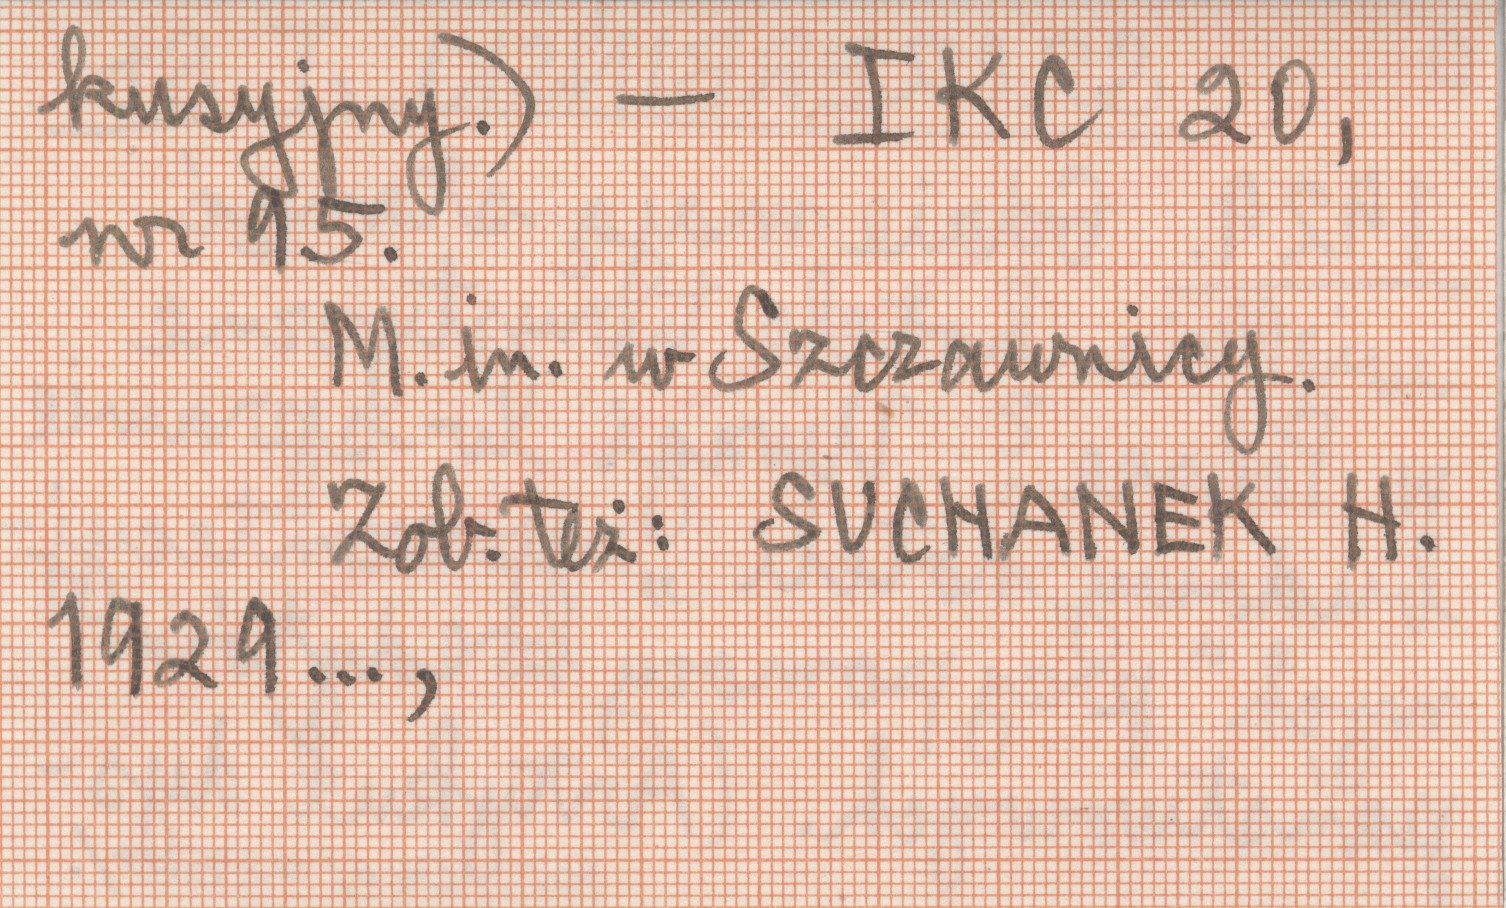 kusyjny.) — IKC 20,
nr 95.
M. in. w Szczawnicy.
Zob. też: SUCHANEK H.
1929...,